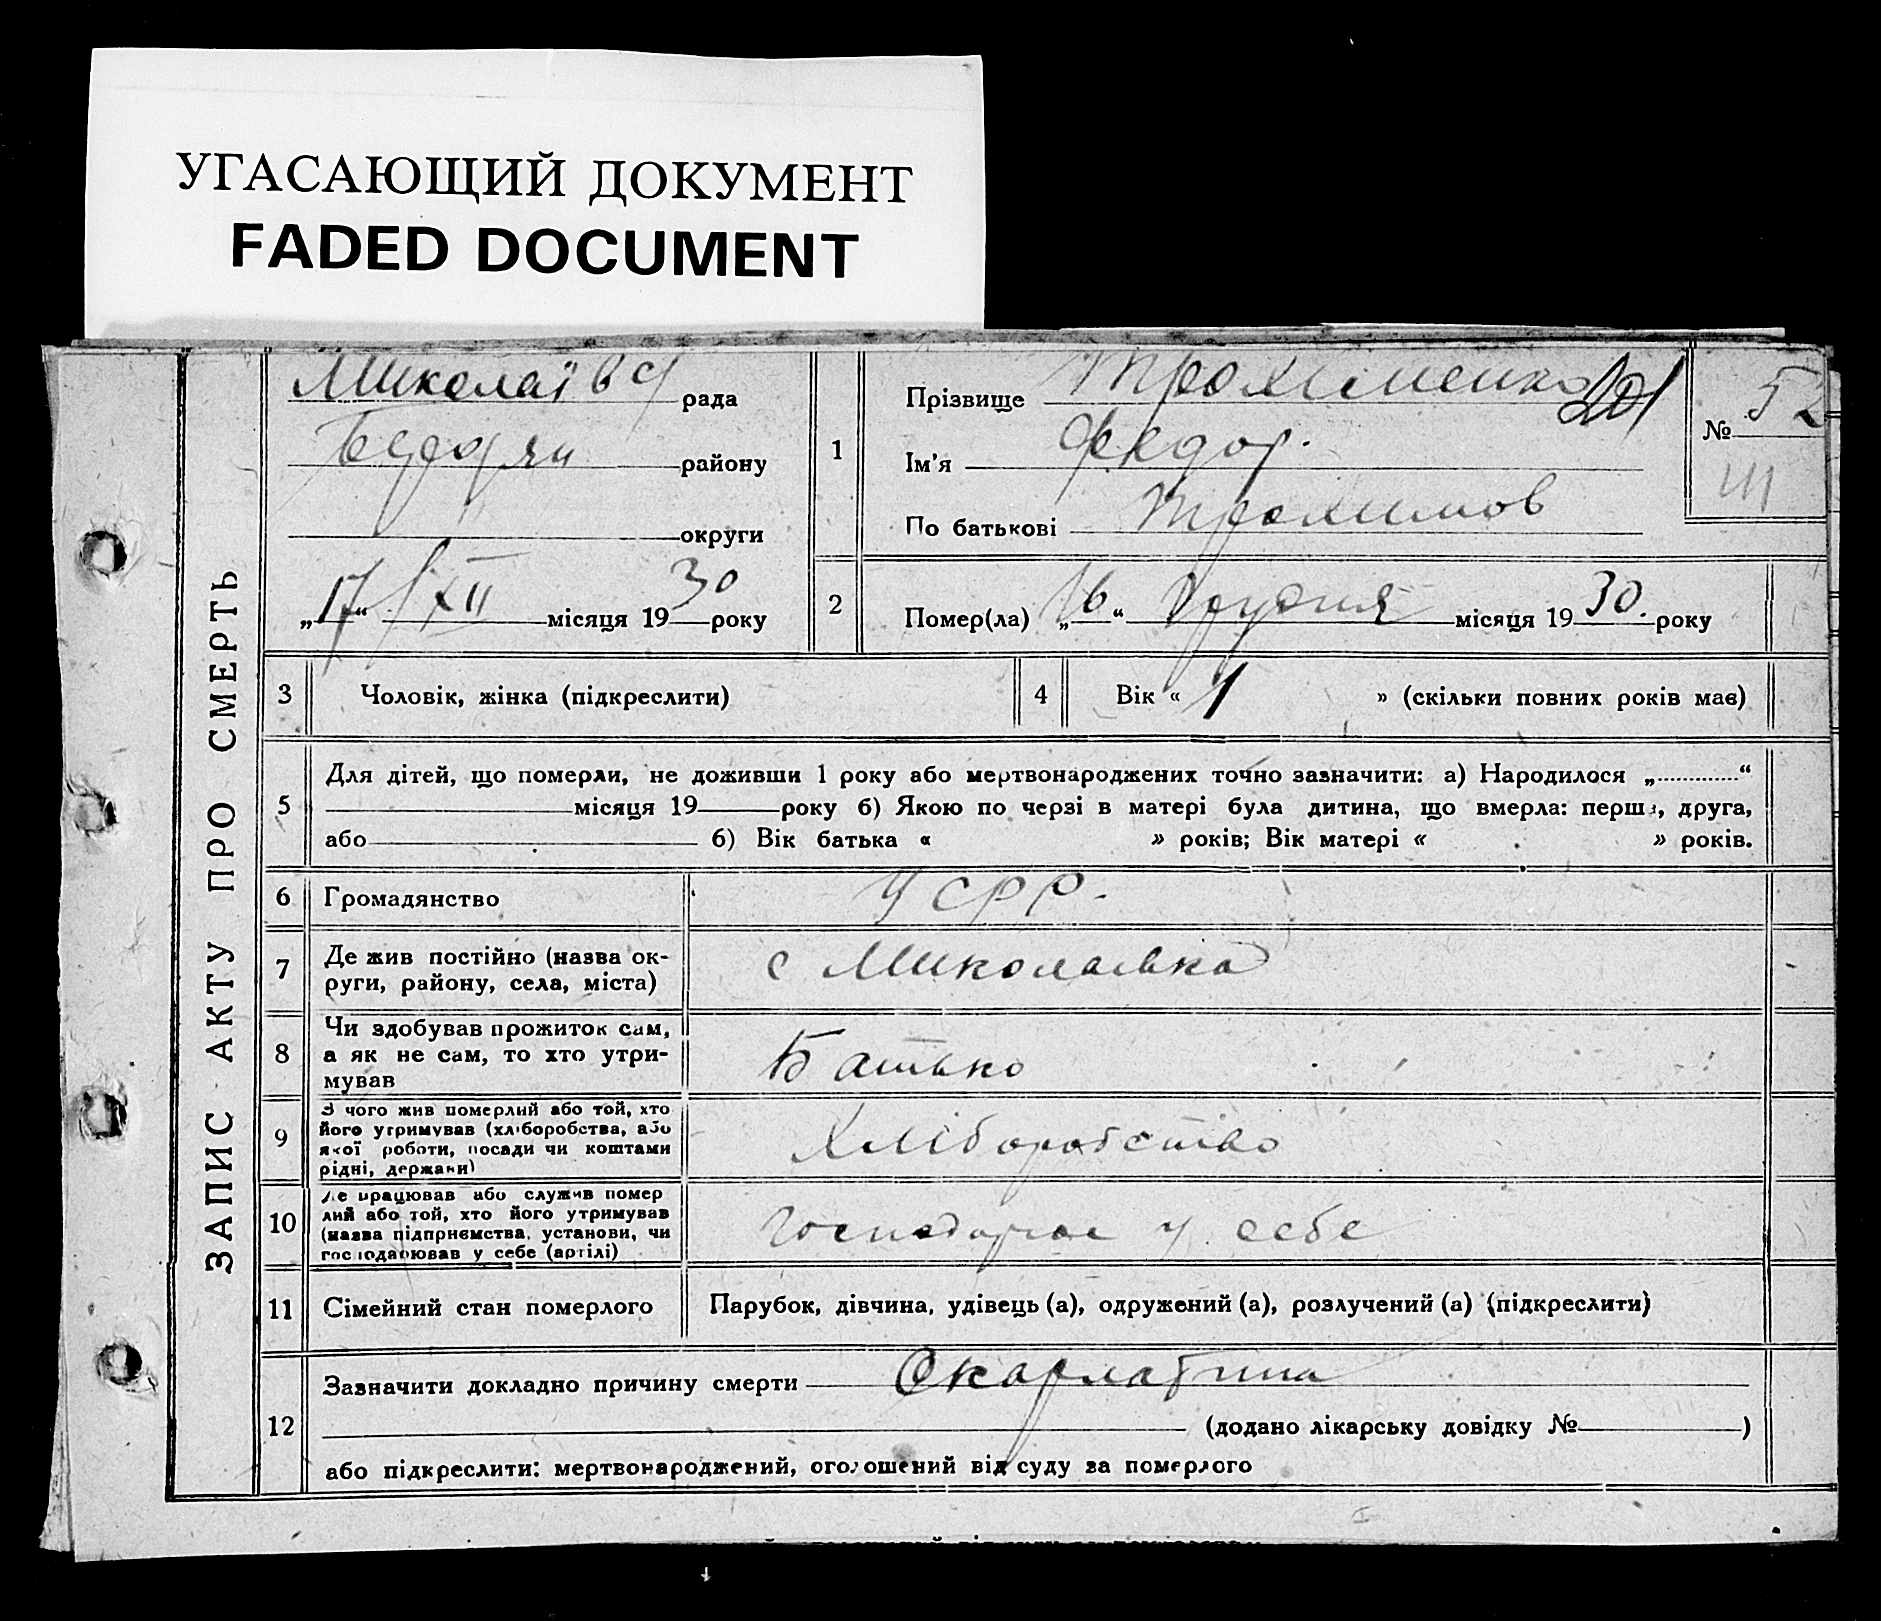 УГАСАЮЩИЙ ДОКУМЕНТ
FADED DOCUMENT
ЗАПИС АКТУ ПРО СМЕРТЬ
Миколаївс рада
району
округи
„17“ XII місяця 1930 року
1
Прізвище Трохименко
Ім'я Федор.
По батькові Трохимов
№ 52
2
Помер(ла) „16“ Грудня місяця 1930. року
3 Чоловік, жінка (підкреслити)
4 Вік « 1 » (скільки повних років має)
5
Для дітей, що померли, не доживши 1 року або мертвонароджених точно зазначити: а) Народилося „ “
місяця 19 року б) Якою по черзі в матері була дитина, що вмерла: перша, друга,
або б) Вік батька « » років; Вік матері « » років.
6 Громадянство УСРР.
7 Де жив постійно (назва ок-
руги, району, села, міста)
с Миколаївка
8 Чи здобував прожиток сам,
а як не сам, то хто утри-
мував
Батько
9 З чого жив померлий або той, хто
його утримував (хліборобства, або
якої роботи, посади чи коштами
рідні, держави)
Хліборобство
10 Де працював або служив помер
лий або той, хто його утримував
(назва підприємства, установи, чи
господарював у себе (артілі)
Господарює у себе
11 Сімейний стан померлого Парубок, дівчина, удівець (а), одружений (а), розлучений (а) (підкреслити)
12
Зазначити докладно причину смерти Скарлатина
(додано лікарську довідку № )
або підкреслити: мертвонароджений, оголошений від суду за померлого